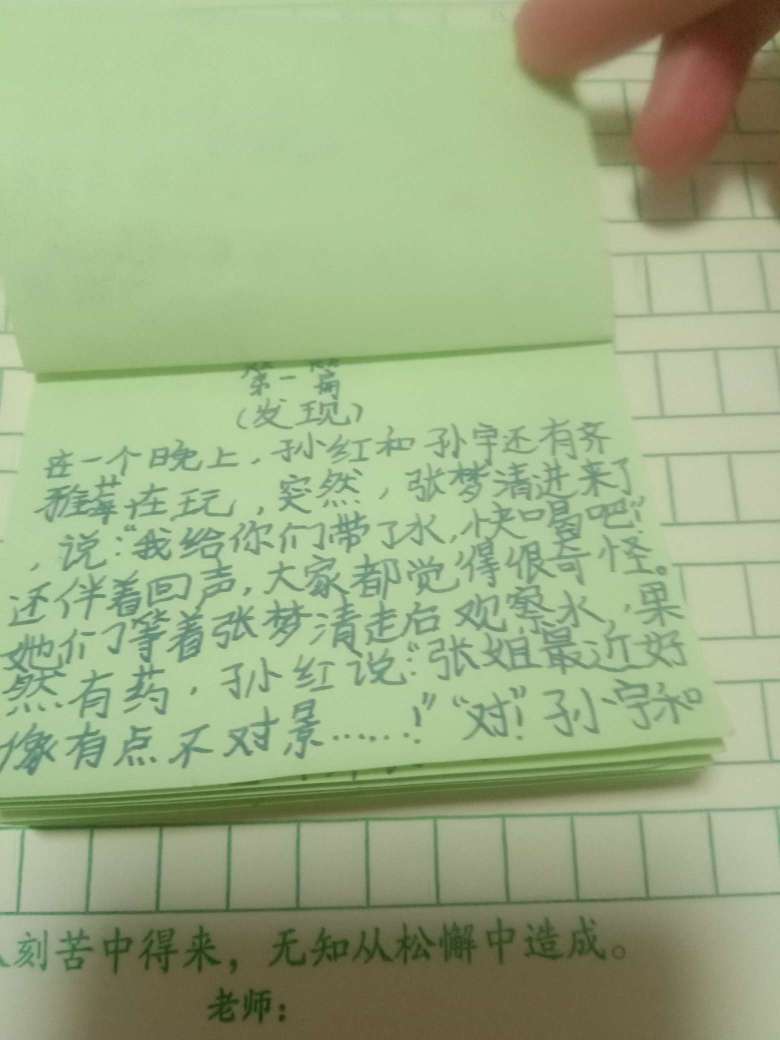 第一篇
(发现)
在一个晚上，孙红和孙宇还有齐
雅莓在玩，突然，张梦清进来了
，说：“我给你们带了水，快喝吧！”
还伴着回声，大家都觉得很奇怪。
她们等着张梦清走后观察水，果
然有药，孙红说：“张姐最近好
像有点不对景……！”“对！”孙宇和
刻苦中得来，无知从松懈中造成。
老师：